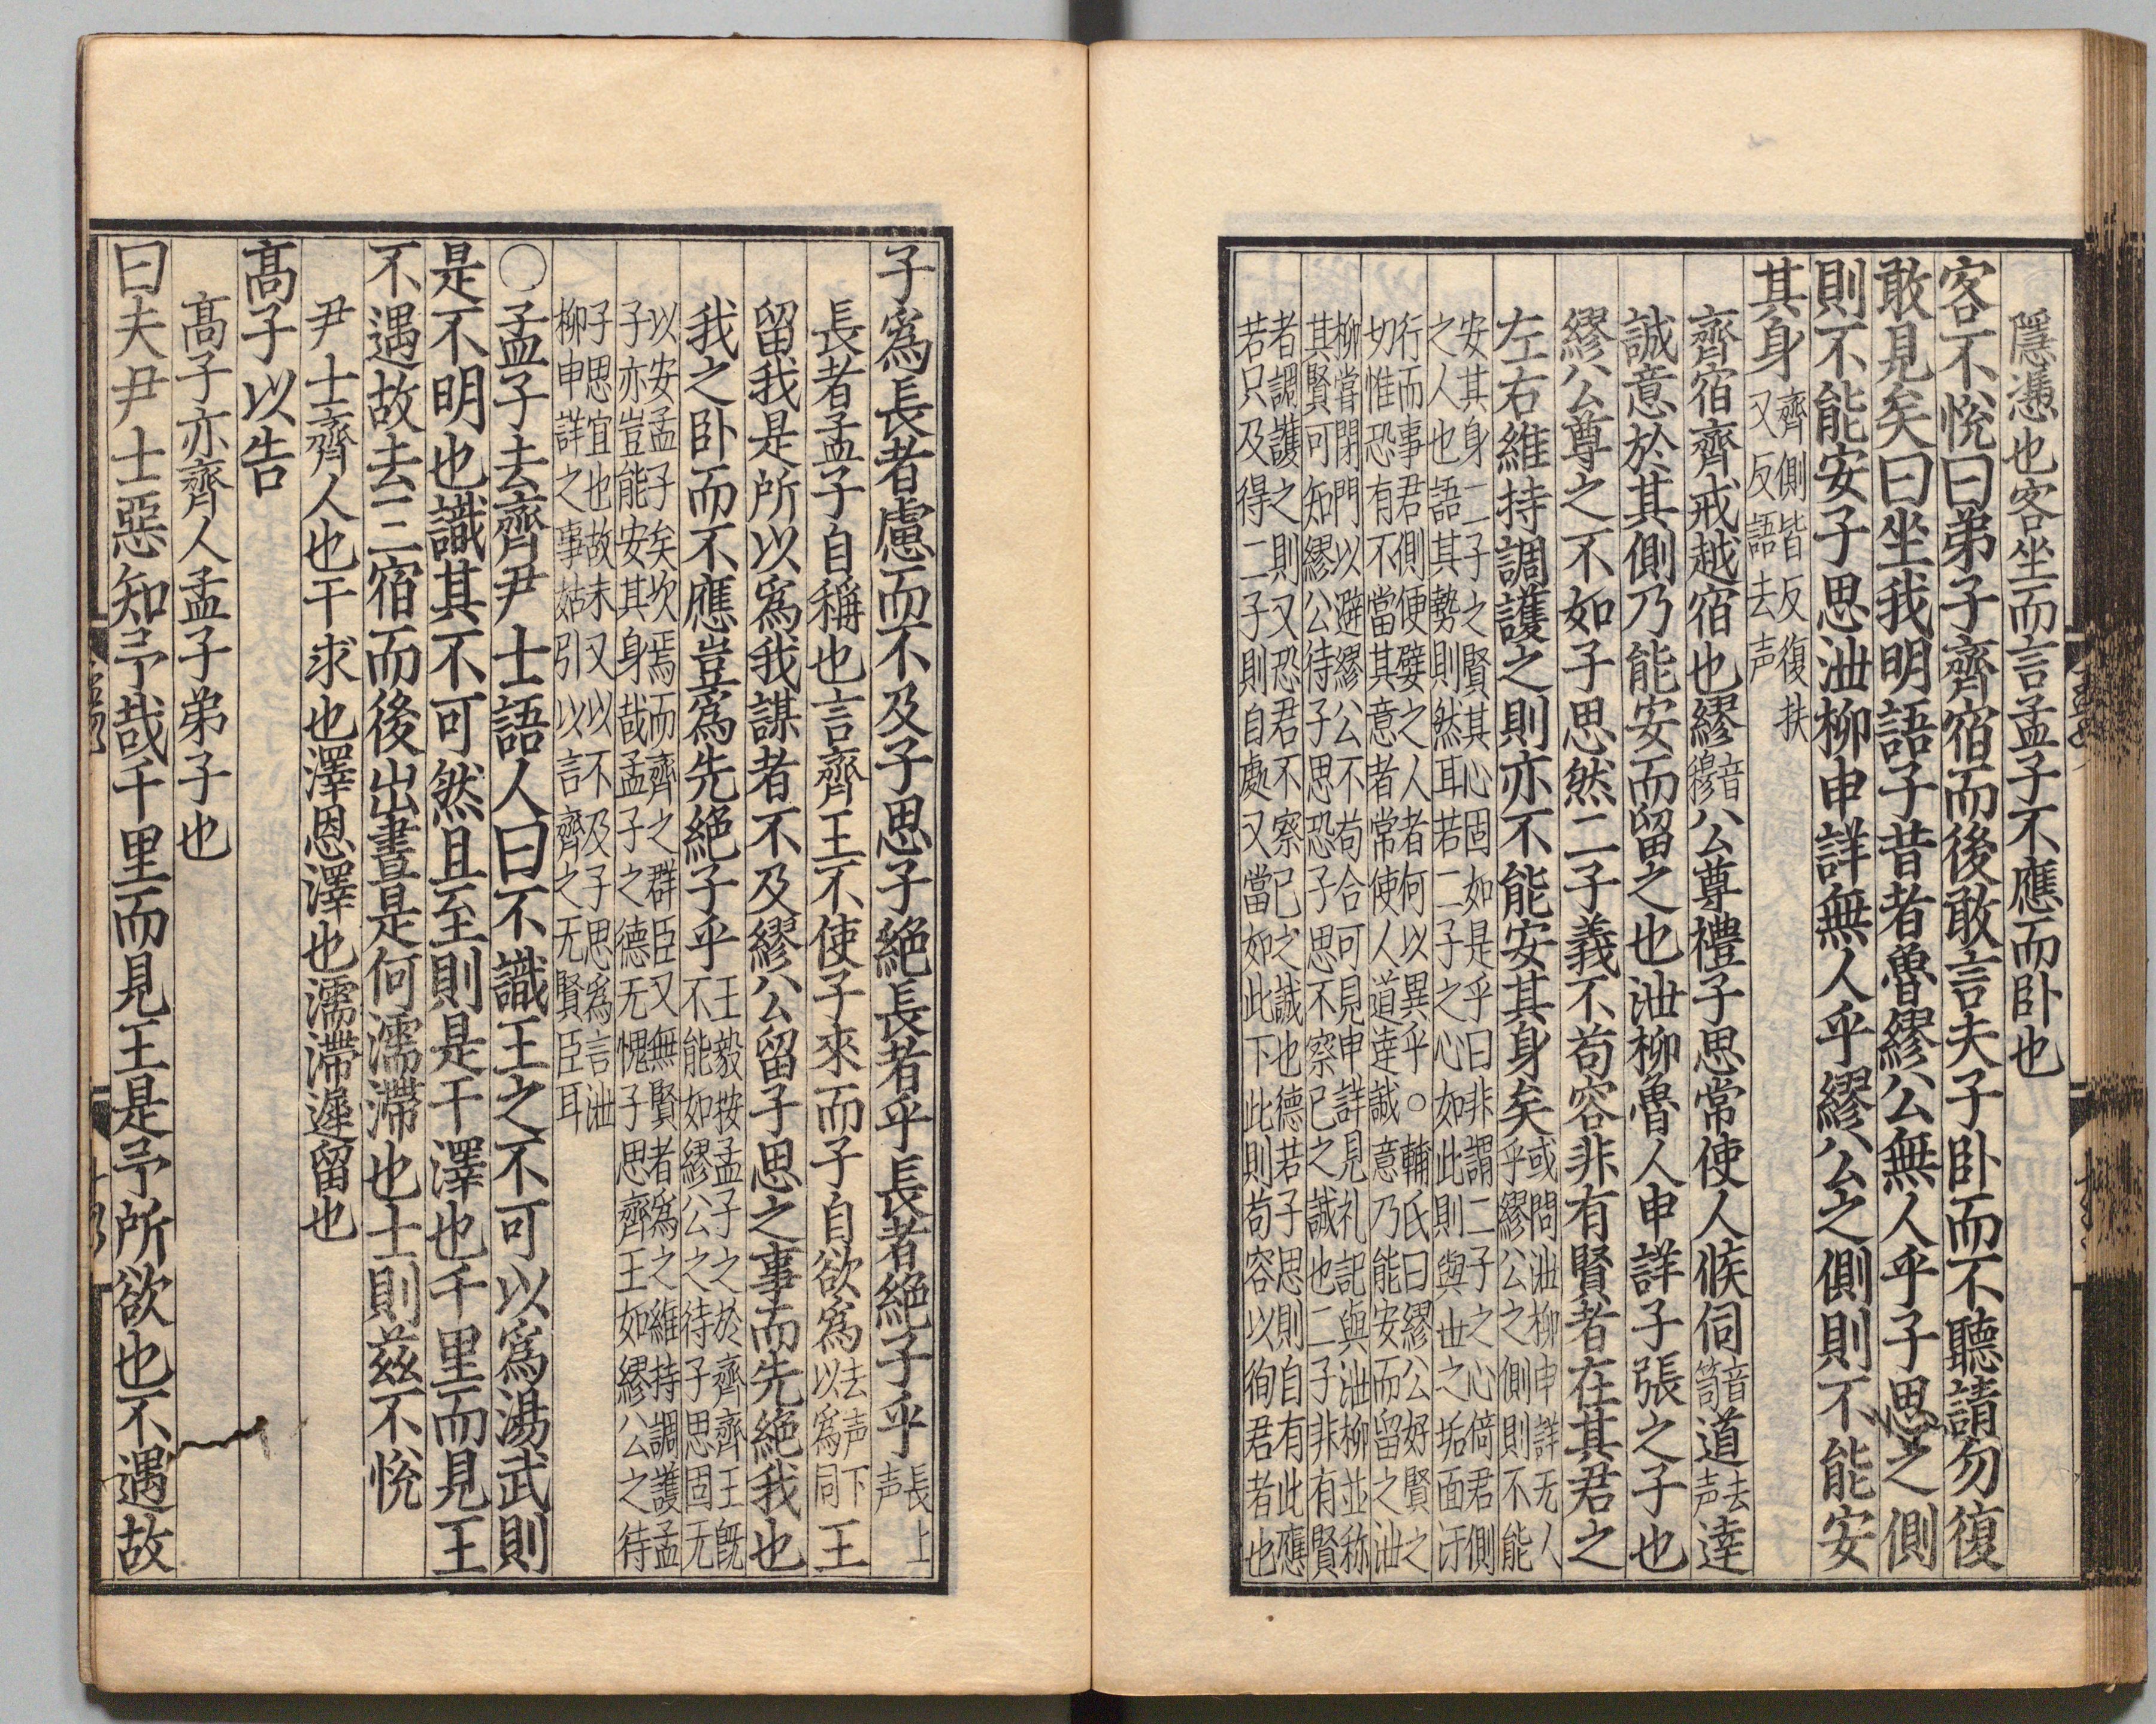 隱憑也客坐而言孟子不應而卧也
客不悅曰弟子齊宿而後敢言夫子卧而不聽請勿復
敢見矣曰坐我明語子昔者魯繆公無人乎子思之側
則不能安子思泄柳申詳無人乎繆公之側則不能安
其身齊側皆反復扶
又反語去声
齊宿齊戒越宿也繆音
穆公尊禮子思常使人候伺音
笥道去
声達
誠意於其側乃能安而留之也泄柳魯人申詳子張之子也
繆公尊之不如子思然二子義不苟容非有賢者在其君之
左右維持調護之則亦不能安其身矣或問泄柳申詳无人
乎繆公之側則不能
安其身二子之賢其心固如是乎曰非謂二子之心倚君側
之人也語其勢則然耳若二子之心如此則與世之垢面汙
行而事君側便嬖之人者何以異乎○輔氏曰繆公好賢之
切惟恐有不當其意者常使人道達誠意乃能安而留之泄
柳嘗閉門以避繆公不苟合可見申詳見礼記與泄柳並称
其賢可知繆公待子思恐子思不察已之誠也二子非有賢
者調護之則又恐君不察已之誠也德若子思則自有此應
若只及得二子則自處又當如此下此則苟容以徇君者也
子爲長者慮而不及子思子絕長者乎長者絕子乎長上
声
長者孟子自稱也言齊王不使子來而子自欲爲去声下
以爲同王
留我是所以爲我謀者不及繆公留子思之事而先絕我也
我之卧而不應豈爲先絕子乎王毅按孟子之於齊齊王既
不能如繆公之待子思固无
以安孟子矣坎焉而齊之群臣又無賢者爲之維持調護孟
子亦豈能安其身哉孟子之德无愧子思齊王如繆公之待
子思宜也故未又以不及子思爲言泄
柳申詳之事姑引以言齊之无賢臣耳
○孟子去齊尹士語人曰不識王之不可以爲湯武則
是不明也識其不可然且至則是干澤也千里而見王
不遇故去三宿而後出晝是何濡滯也士則茲不悅
尹士齊人也干求也澤恩澤也濡滯遲留也
高子以告
高子亦齊人孟子弟子也
曰夫尹士惡知予哉千里而見王是予所欲也不遇故